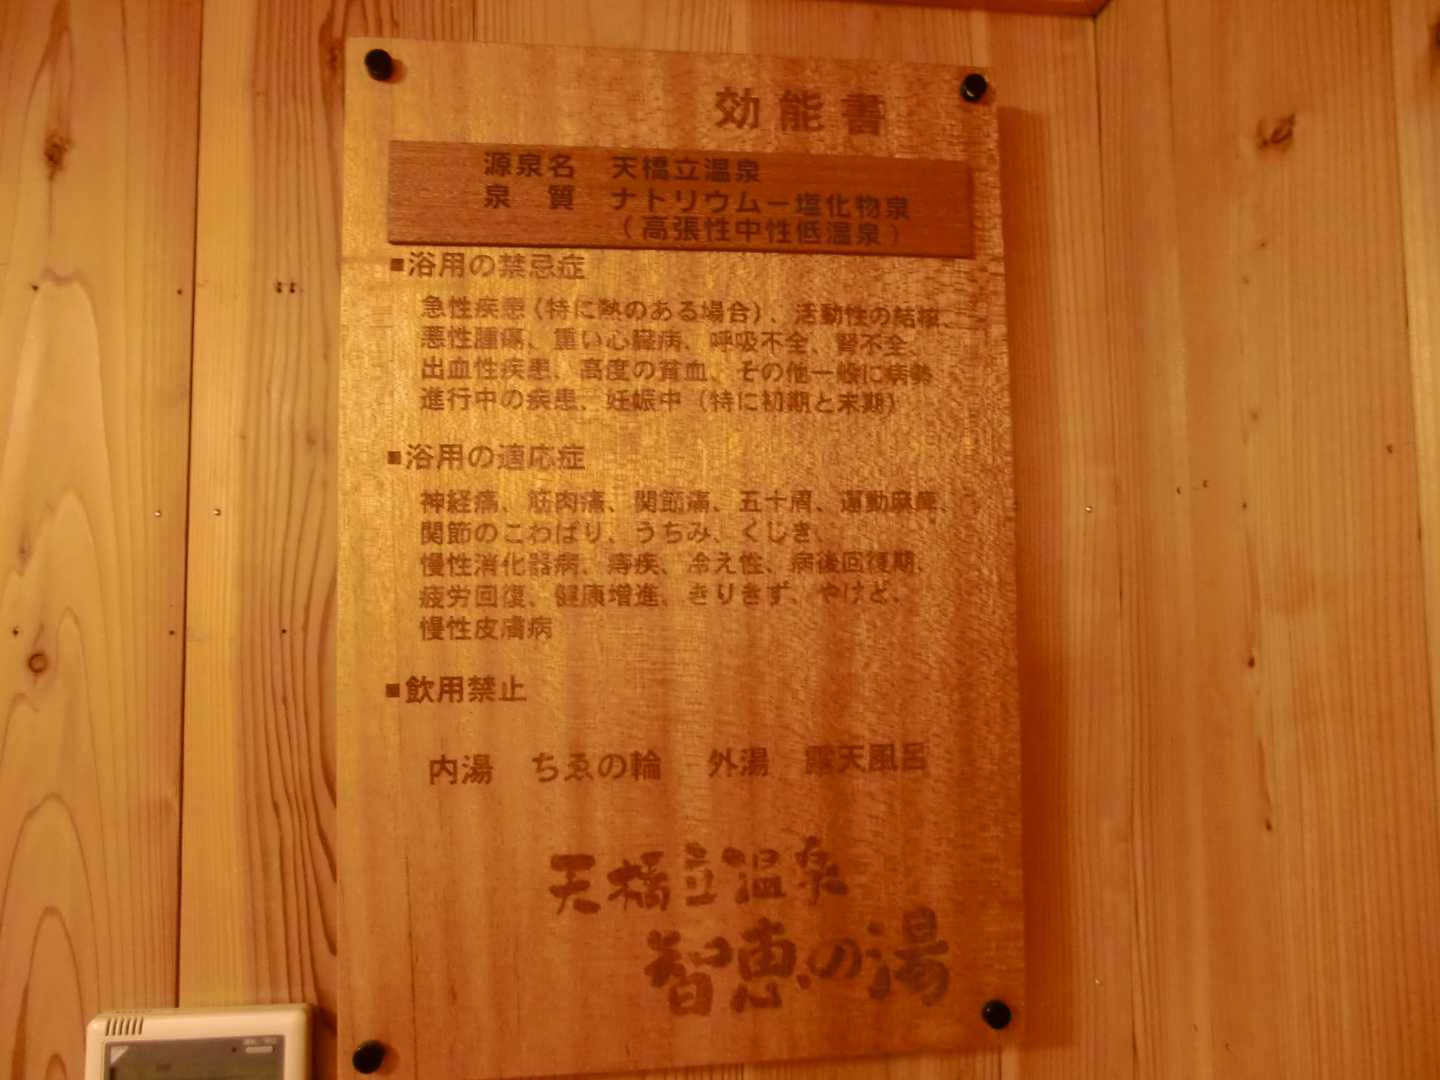 効能書
源泉名 天橋立温泉
泉 質 ナトリウム－塩化物泉
（高張性中性低温泉）
■浴用の禁忌症
急性疾患（特に熱のある場合）、活動性の結核、
悪性腫瘍、重い心臓病、呼吸不全、腎不全、
出血性疾患、高度の貧血、その他一般に病勢
進行中の疾患、妊娠中（特に初期と末期）
■浴用の適応症
神経痛、筋肉痛、関節痛、五十肩、運動麻痺、
関節のこわばり、うちみ、くじき、
慢性消化器病、痔疾、冷え性、病後回復期、
疲労回復、健康増進、きりきず、やけど、
慢性皮膚病
■飲用禁止
内湯 ちゑの輪 外湯 露天風呂
天橋立温泉
智恵の湯